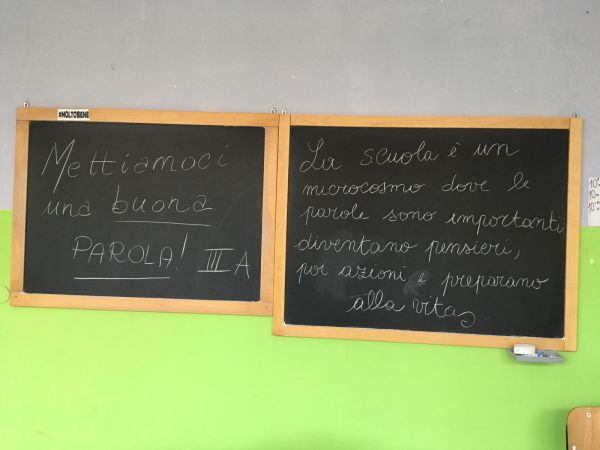 #MOLTOBENE
Mettiamoci
una buona
PAROLA! III A
La scuola è un
microcosmo dove le
parole sono importanti
diventano pensieri,
poi azioni e preparano
alla vita